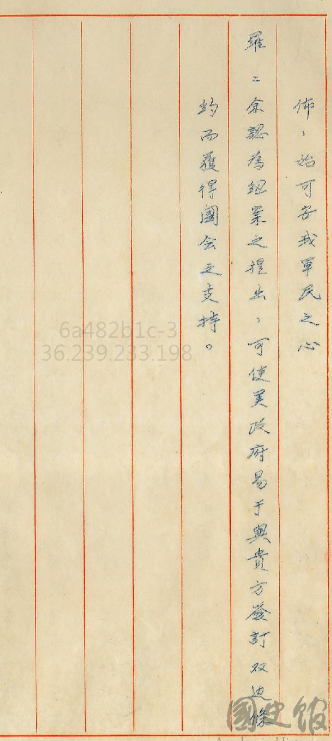 佈，始可安我軍民之心
羅：余認為紐案之提出，可使美政府易于與貴方簽訂双边條
約而獲得國会之支持。
6a482b1c-3
36.239.233.198
國史館